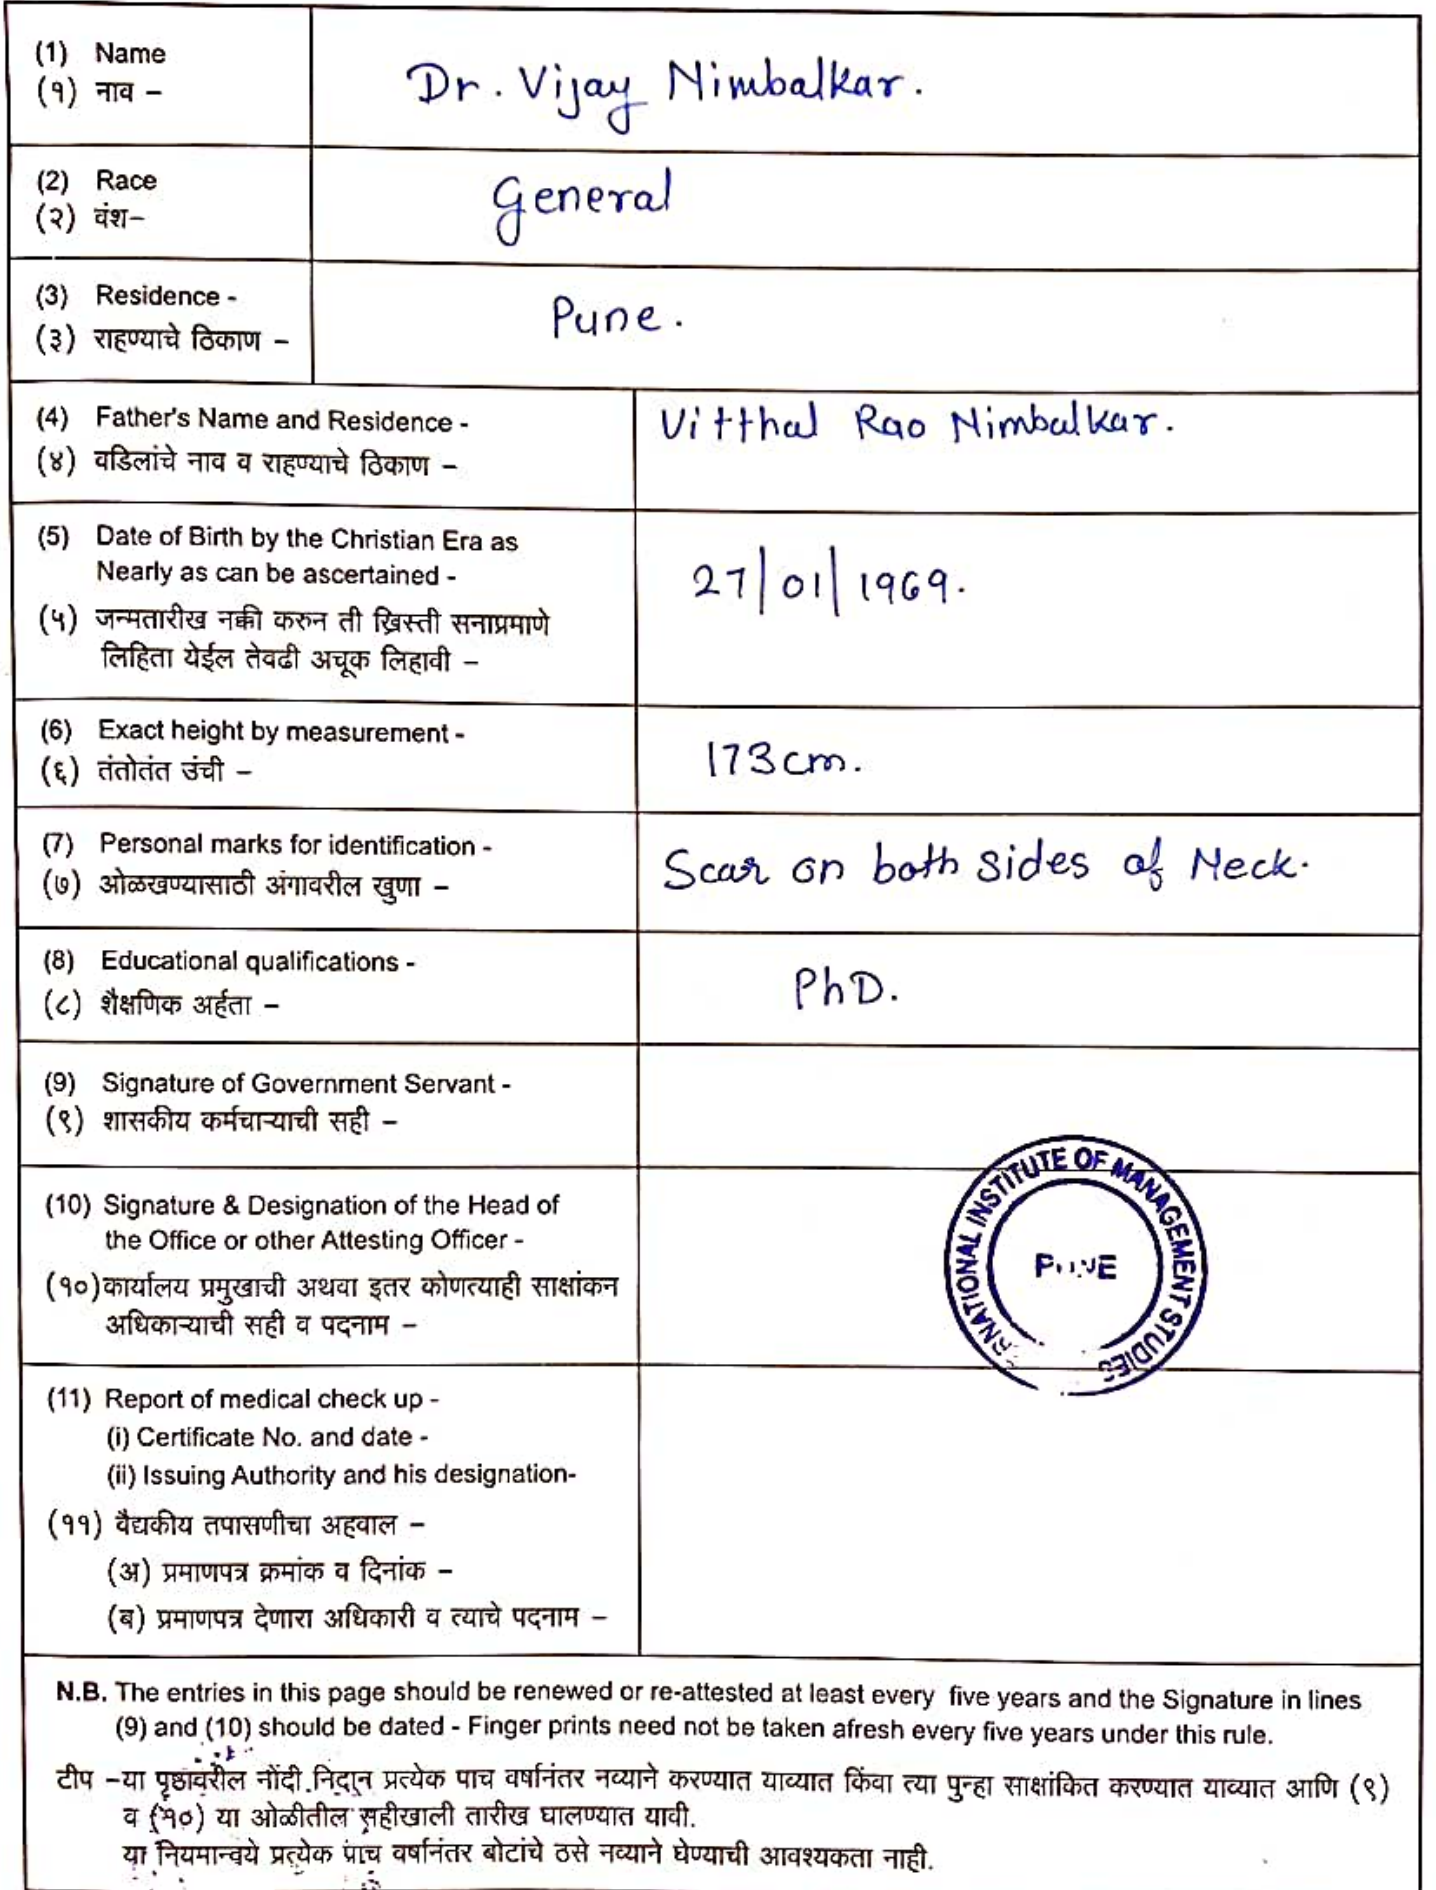 (1) Name
(१) नाव –
Dr. Vijay Nimbalkar.
(2) Race
(२) वंश–
General
(3) Residence -
(३) राहण्याचे ठिकाण –
Pune.
(4) Father's Name and Residence -
(४) वडिलांचे नाव व राहण्याचे ठिकाण –
Vitthal Rao Nimbalkar.
(5) Date of Birth by the Christian Era as
Nearly as can be ascertained -
(५) जन्मतारीख नक्की करुन ती ख्रिस्ती सनाप्रमाणे
लिहिता येईल तेवढी अचूक लिहावी –
27/01/1969.
(6) Exact height by measurement -
(६) तंतोतंत उंची –
173cm.
(7) Personal marks for identification -
(७) ओळखण्यासाठी अंगावरील खुणा –
Scar on both sides of Neck.
(8) Educational qualifications -
(८) शैक्षणिक अर्हता –
PhD.
(9) Signature of Government Servant -
(९) शासकीय कर्मचाऱ्याची सही –
(10) Signature & Designation of the Head of
the Office or other Attesting Officer -
(१०) कार्यालय प्रमुखाची अथवा इतर कोणत्याही साक्षांकन
अधिकाऱ्याची सही व पदनाम –
INSTITUTE OF MANAGEMENT STUDIES
PUNE
(11) Report of medical check up -
(i) Certificate No. and date -
(ii) Issuing Authority and his designation-
(११) वैद्यकीय तपासणीचा अहवाल –
(अ) प्रमाणपत्र क्रमांक व दिनांक –
(ब) प्रमाणपत्र देणारा अधिकारी व त्याचे पदनाम –
N.B. The entries in this page should be renewed or re-attested at least every five years and the Signature in lines
(9) and (10) should be dated - Finger prints need not be taken afresh every five years under this rule.
टीप –या पृष्ठावरील नोंदी निदान प्रत्येक पाच वर्षानंतर नव्याने करण्यात याव्यात किंवा त्या पुन्हा साक्षांकित करण्यात याव्यात आणि (९)
व (१०) या ओळीतील सहीखाली तारीख घालण्यात यावी.
या नियमान्वये प्रत्येक पाच वर्षानंतर बोटांचे ठसे नव्याने घेण्याची आवश्यकता नाही.